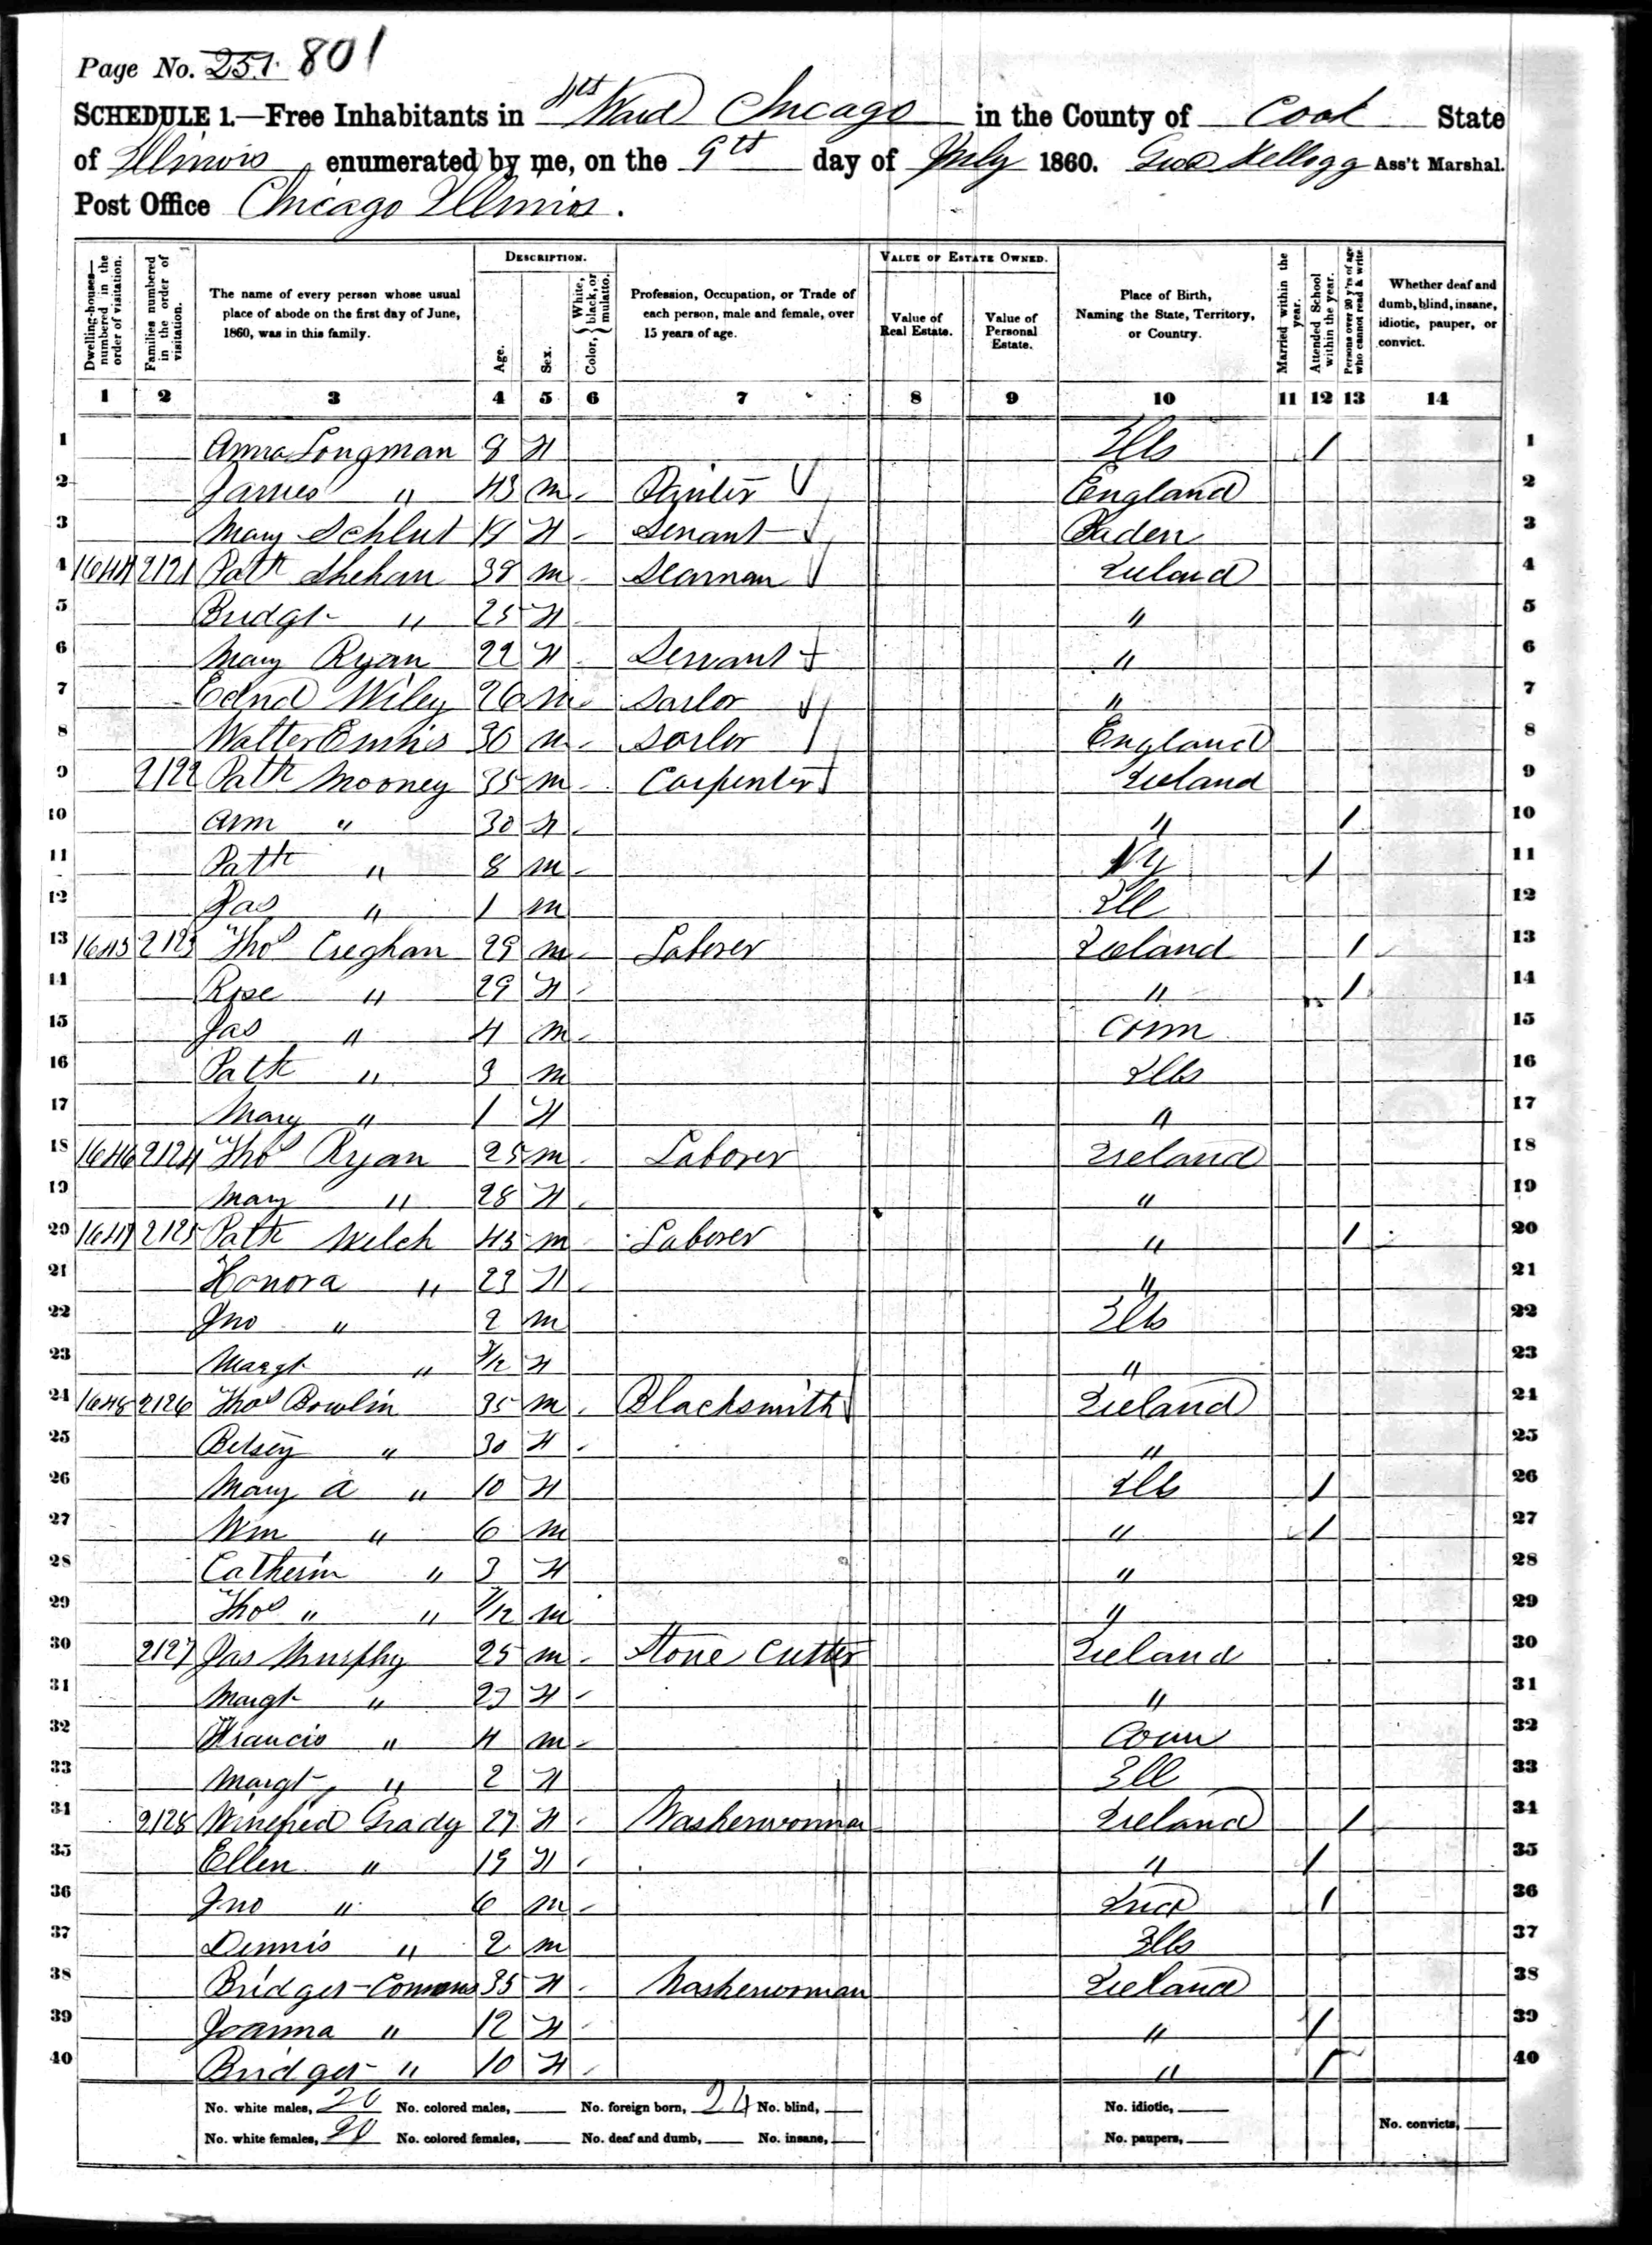 Page No. 257. 801
SCHEDULE 1.—Free Inhabitants in 1st Ward Chicago in the County of Cook State
of Illinois enumerated by me, on the 9th day of July 1860. Geo Kellogg Ass't Marshal.
Post Office Chicago Illinois.
Dwelling-houses—numbered in the order of visitation. Families numbered in the order of visitation. The name of every person whose usual place of abode on the first day of June, 1860, was in this family. DESCRIPTION. Age. Sex. Color, White, black, or mulatto. Profession, Occupation, or Trade of each person, male and female, over 15 years of age. VALUE OF ESTATE OWNED. Value of Real Estate. Value of Personal Estate. Place of Birth, Naming the State, Territory, or Country. Married within the year. Attended School within the year. Persons over 20 y'rs of age who cannot read & write. Whether deaf and dumb, blind, insane, idiotic, pauper, or convict.
1 2 3 4 5 6 7 8 9 10 11 12 13 14
1 Anna Longman 8 F Ills / 1
2 James " 43 m Painter England 2
3 Mary Schlut F Servant Baden 3
4 1644 2121 Patk Shehan 38 m Seaman Ireland 4
5 Bridgt " 25 F " 5
6 Mary Ryan 22 F Servant " 6
7 Edmd Wiley 26 m Sailor " 7
8 Walter Ennis 30 m Sailor England 8
9 2122 Patk Mooney 35 m Carpenter Ireland 9
10 Ann " 30 F " / 10
11 Patk " 8 m NY / 11
12 Jas " 1 m Ill 12
13 1645 2123 Thos Creghan 29 m Laborer Ireland / 13
14 Rose " 29 F " / 14
15 Jas " 4 m Conn 15
16 Patk " 3 m Ills 16
17 Mary " 1 F " 17
18 1646 2124 Thos Ryan 25 m Laborer Ireland 18
19 Mary " 28 F " 19
20 1647 2125 Patk Welch 45 m Laborer " / 20
21 Honora " 23 F " 21
22 Jno " 2 m Ills 22
23 Margt " F " 23
24 1648 2126 Thos Bowlin 35 m Blacksmith Ireland 24
25 Betsey " 30 F " 25
26 Mary A " 10 F Ills / 26
27 Wm " 6 m " / 27
28 Catherin " 3 F " 28
29 Thos " " m " 29
30 2127 Jas Murphy 25 m Stone Cutter Ireland 30
31 Margt " 23 F " 31
32 Francis " 4 m Conn 32
33 Margt " 2 F Ill 33
34 2128 Winefred Grady 27 F Washerwoman Ireland / 34
35 Ellen " 19 F " / 35
36 Jno " 6 m Ind / 36
37 Dennis " 2 m Ills 37
38 Bridget Comans 35 F Washerwoman Ireland 38
39 Joanna " 12 F " / 39
40 Bridget " 10 F " / 40
No. white males, 20 No. colored males, No. foreign born, 24 No. blind, No. idiotic,
No. white females, 20 No. colored females, No. deaf and dumb, No. insane, No. paupers, No. convicts,